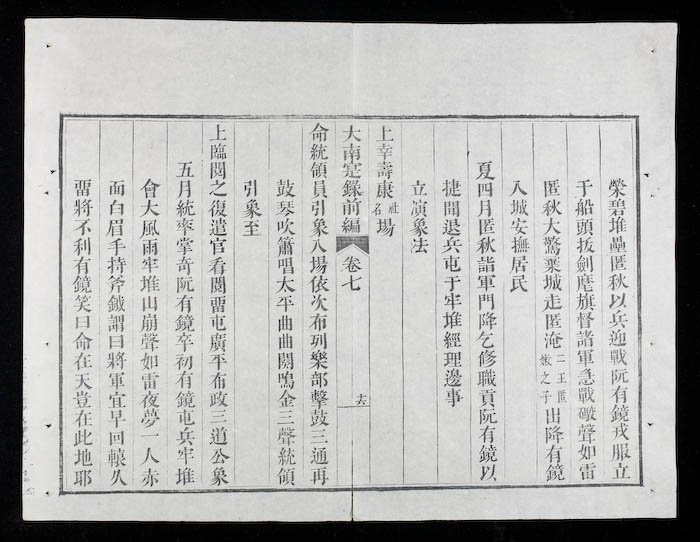 榮碧堆壘匿秋以兵迎戰阮有鏡戎服立
于船頭拔劍麾旗督諸軍急戰礮聲如雷
匿秋大驚棄城走匿淹二王匿嫩之子出降有鏡
入城安撫居民
夏四月匿秋詣軍門降乞修職貢阮有鏡以
捷聞退兵屯于牢堆經理邊事
立演象法
上幸壽康社名場
大南寔錄前編 卷七 十六
命統領員引象入場依次布列樂部擊鼓三通再
鼓琴吹簫唱太平曲曲闋鳴金三聲統領
引象至
上臨閱之復遣官看閱畱屯廣平布政三道公象
五月統率掌奇阮有鏡卒初有鏡屯兵牢堆
會大風雨牢堆山崩聲如雷夜夢一人赤
面白眉手持斧鉞謂曰將軍宜早回轅久
畱將不利有鏡笑曰命在天豈在此地耶